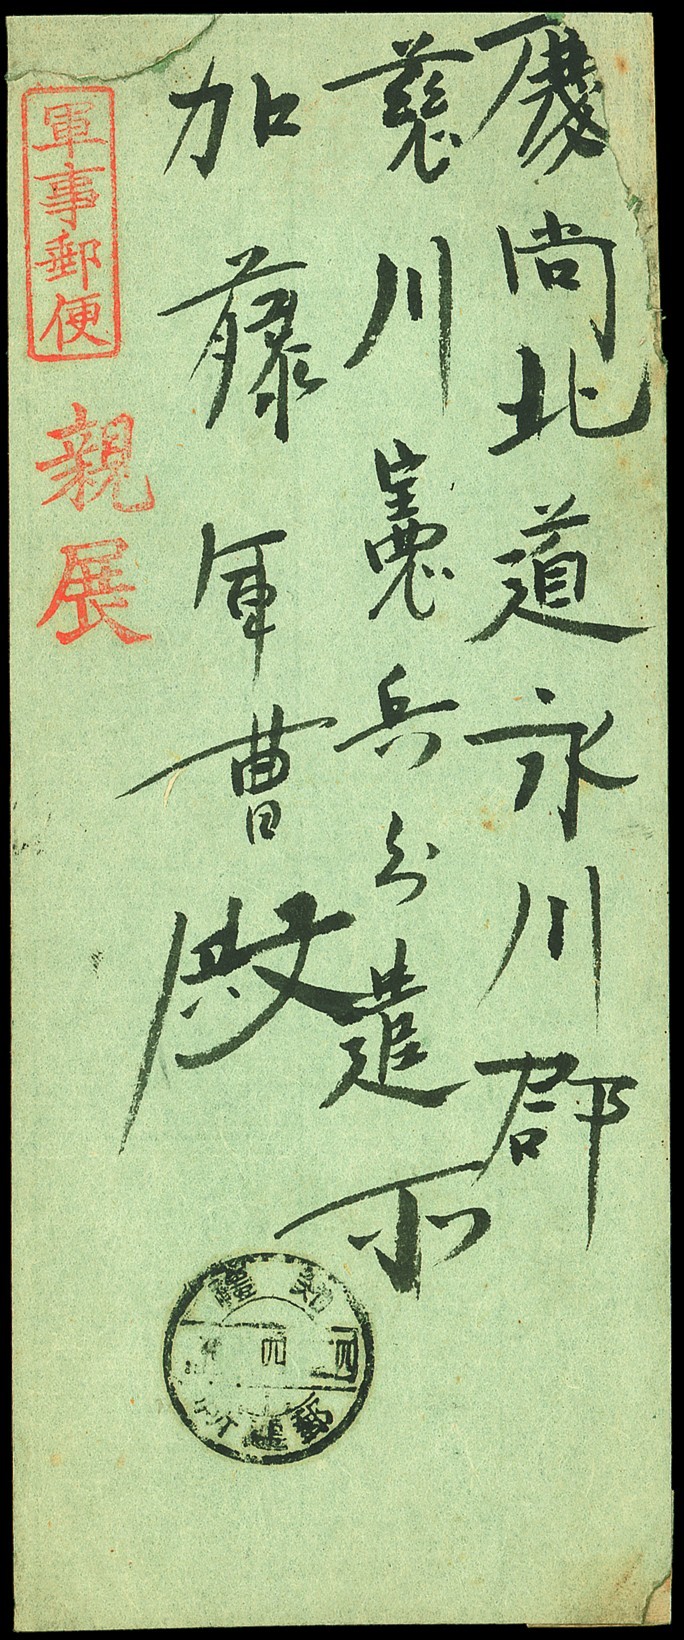 慶尚北道永川郡
慈川憲兵分遣所
加藤軍曹殿
軍事郵便
親展
四
四
郵